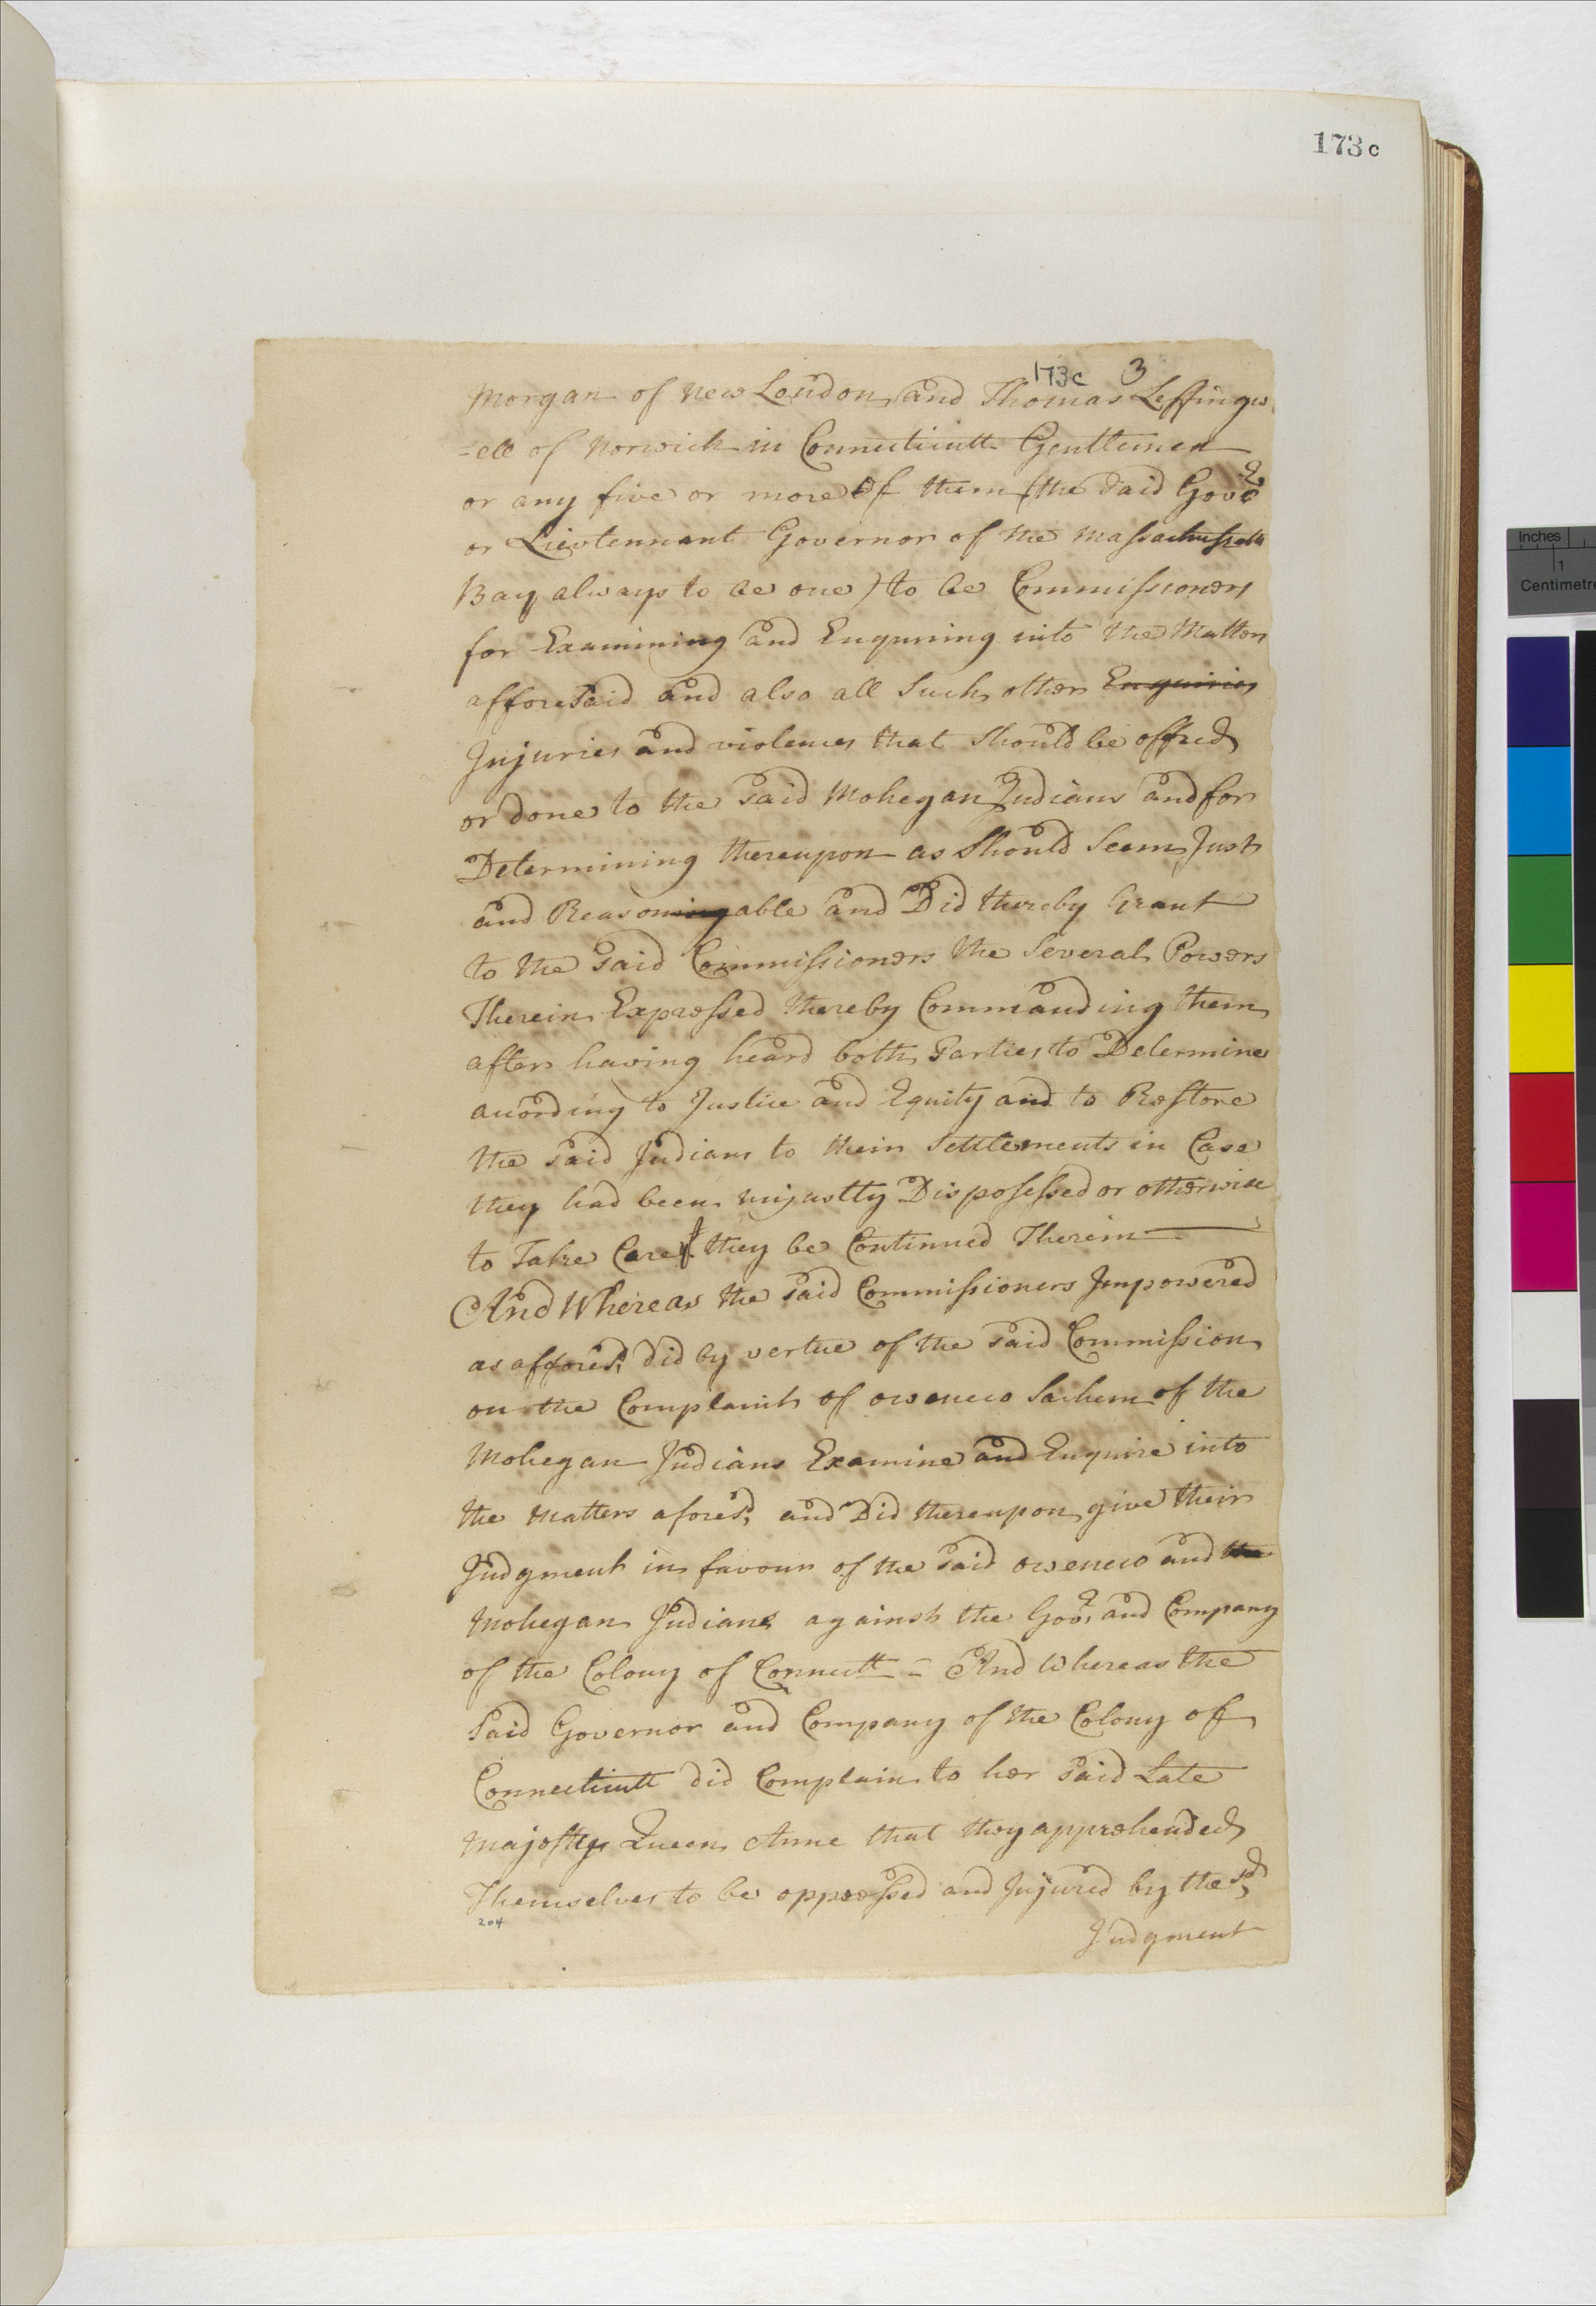 173c
173c 3
Morgan of New London and Thomas Leffingw
=ell of Norwich in Connecticutt Gentlemen
or any five or more Of them (the said Govr
or Lievtennant Governor of the Massachussetts
Bay always to be one) to be Commissioners
for Examining and Enquiring into the Matters
afforesaid and also all Such other Enquiries
Injuries and violences that Should be offred
or done to the said Mohegan Indians and for
Determining thereupon as Should Seem Just
and Reasoningable and Did thereby Grant
to the said Commissioners the Several Powers
Therein Expressed thereby Commanding them
after having heard both Parties to Determine
according to Justice and Equity and to Restore
the said Indians to their Settlements in Case
they had been unjustly Dispossessed or otherwise
to Take Care yt they be Continued Therein
And Whereas the said Commissioners Impowered
as affores'd did by vertue of the said Commission
on the Complaint of oweneco Sachem of the
Mohegan Indians Examine and Enquire into
the Matters afores'd, and Did thereupon give their
Judgment in favour of the said oweneco and the
Mohegan Indians against the Govr and Company
of the Colony of Connectt = And Whereas the
said Governor and Company of the Colony of
Connecticutt did Complain to her said Late
Majesty Queen Anne that they apprehended
Themselves to be oppressed and Injured by the sd,
204
Judgment